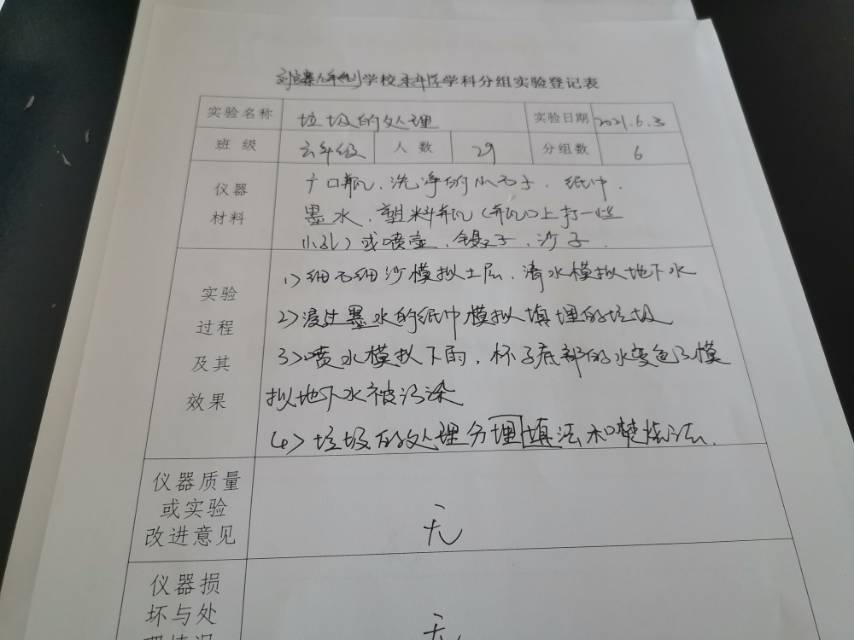 学校科学学科分组实验登记表
实验名称 垃圾的处理 实验日期 2021.6.3
班级 六年级 人数 29 分组数 6
仪器 广口瓶、洗净的小石子、纸巾、
材料 墨水、塑料瓶(瓶口上打一些
小孔)或喷壶、镊子、沙子.
实验 1)细石细沙模拟土层、清水模拟地下水
过程 2)浸过墨水的纸巾模拟填埋的垃圾
及其 3)喷水模拟下雨,杯子底部的水变色了模
效果 拟地下水被污染
4)垃圾的处理分埋填法和焚烧法.
仪器质量
或实验
改进意见 无
仪器损
坏与处 无
理情况